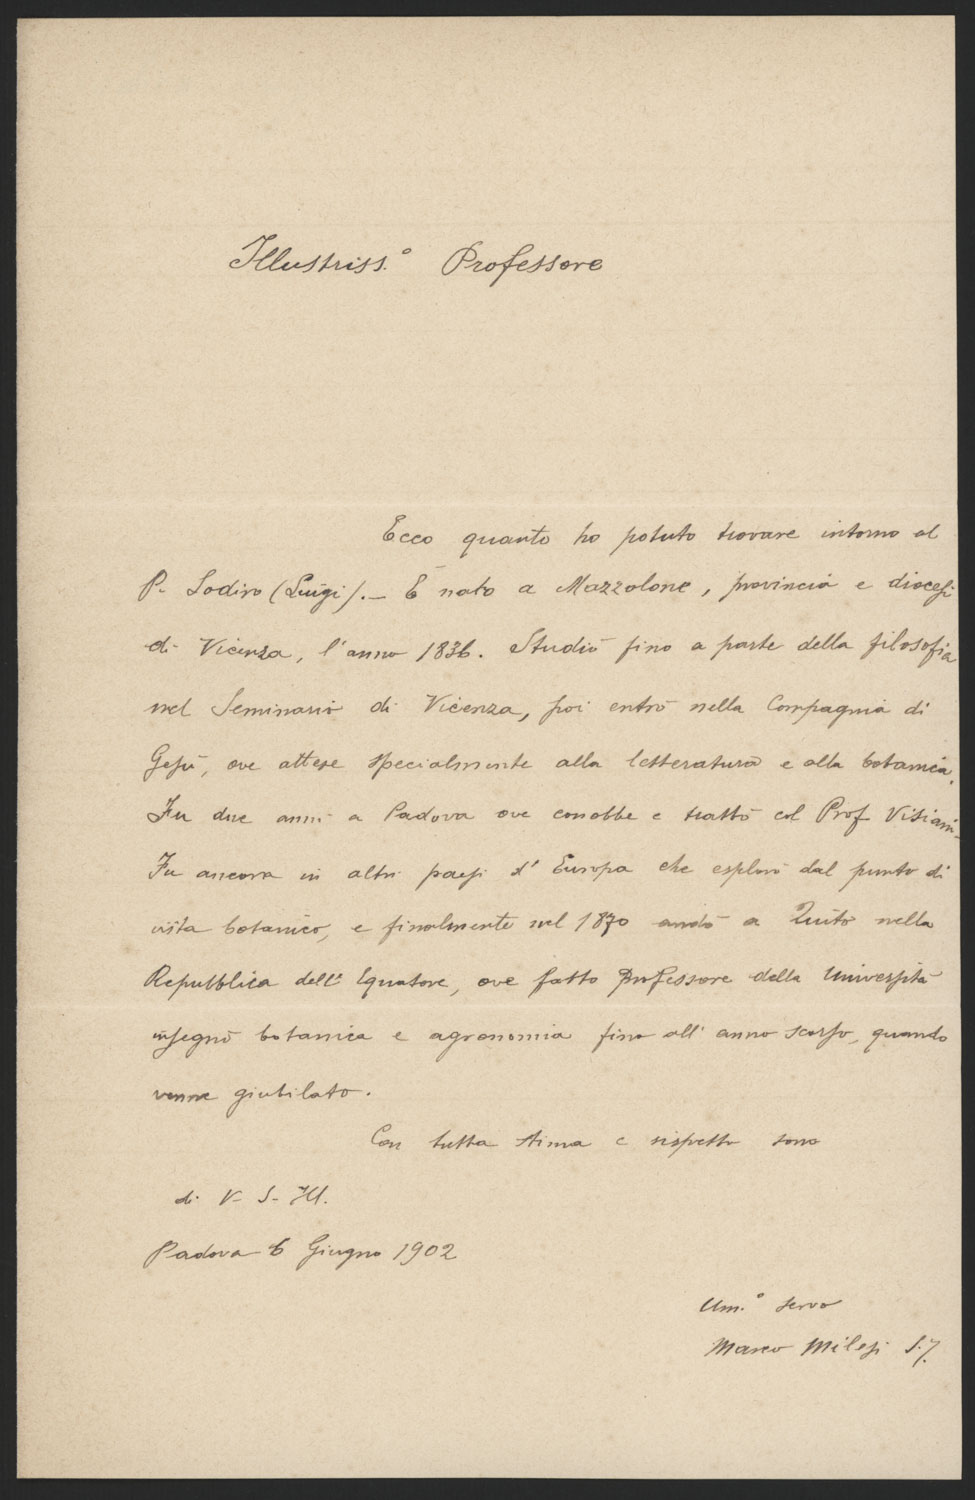 Illustriss.° Professore
Ecco quanto ho potuto trovare intorno al
P. Sodiro (Luigi). — È nato a Mazzolone, provincia e diocesi
di Vicenza, l'anno 1836. Studiò fino a parte della filosofia
nel Seminario di Vicenza, poi entrò nella Compagnia di
Gesù, ove attese specialmente alla letteratura e alla botanica.
Fu due anni a Padova ove conobbe e trattò col Prof Visiani.
Fu ancora in altri paesi d'Europa che esplorò dal punto di
vista botanico, e finalmente nel 1870 andò a Quito nella
Repubblica dell'Equatore, ove fatto Professore della Università
insegnò botanica e agronomia fino all'anno scorso, quando
venne giubilato.
Con tutta stima e rispetto sono
di V. S. Ill.
Padova 6 Giugno 1902
Um.° servo
Marco Milesi S.J.